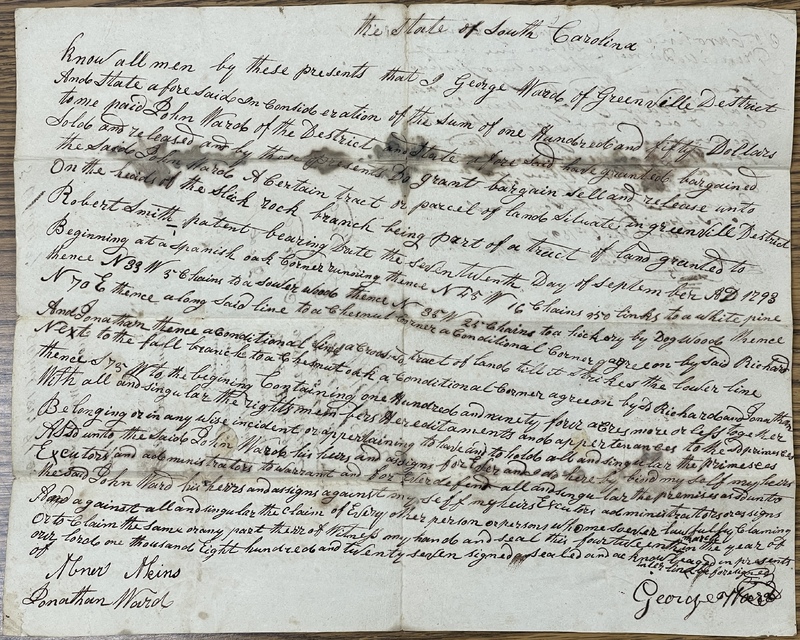 the State of South Carolina
know all men by these presents that I George Ward of Greenville Destrict
And State afore Said in Consideration of the Sum of one Hundred and fifty Dollars
to me paid John Ward of the Destrict and State afore Said have granted bargained
Sold and released and by these presents Do grant bargain Sell and release unto
the Said John Ward A Certain tract or parcel of land Situate in greenvill Destrict
On the heads of the Slick rock branch being part of a tract of land granted to
Robert Smith patent bearing Date the Seven twenth Day of September AD 1798
Beginning at a Spanish oak Corner runing thence N 45 W 16 Chains 950 links to a white pine
thence N 33 W 5 Chains to a Sower wood thence N 35 W 25 Chains to a hickory by Dog Wood thence
N 70 E thence along Said line to a Chesnut Corner a Conditional Corner agreeon by Said Richard
And Jonathan thence a Conditional line a Cross Sd tract of land till it Strikes the lower line
Next to the fall branch to a Chesnut oak a Conditional Corner agreeon by Sd Richard and Jonathan
thence S 75 W to the begining Containing one Hundred and ninety four acres more or less together
With all and Singular the rights members Hereditaments and appertenances to the Sd primises
Belonging or in any wise incident or appertaining to have and to hold all and Singular the primeses
Abs'd unto the Said John Ward his heirs and assigns for Ever and I do here by bind my Self my heirs
Excutors and administrators to warrant and for Ever defend all and Singular the premises unto
the Said John Ward his heirs and assigns against my Self my heirs Excutors administrators or assigns
And against all and Singular the Claim of Every other person or persons whome soever lawfully Claiming
Or to Claim the Same or any part therof Witness my hand and Seal this fourteenth in the year of
our lord one thousand Eight hundred and twenty Seven Signed Sealed and acknowleaged in presents
of
Abner Akins
Jonathan Ward
George Ward